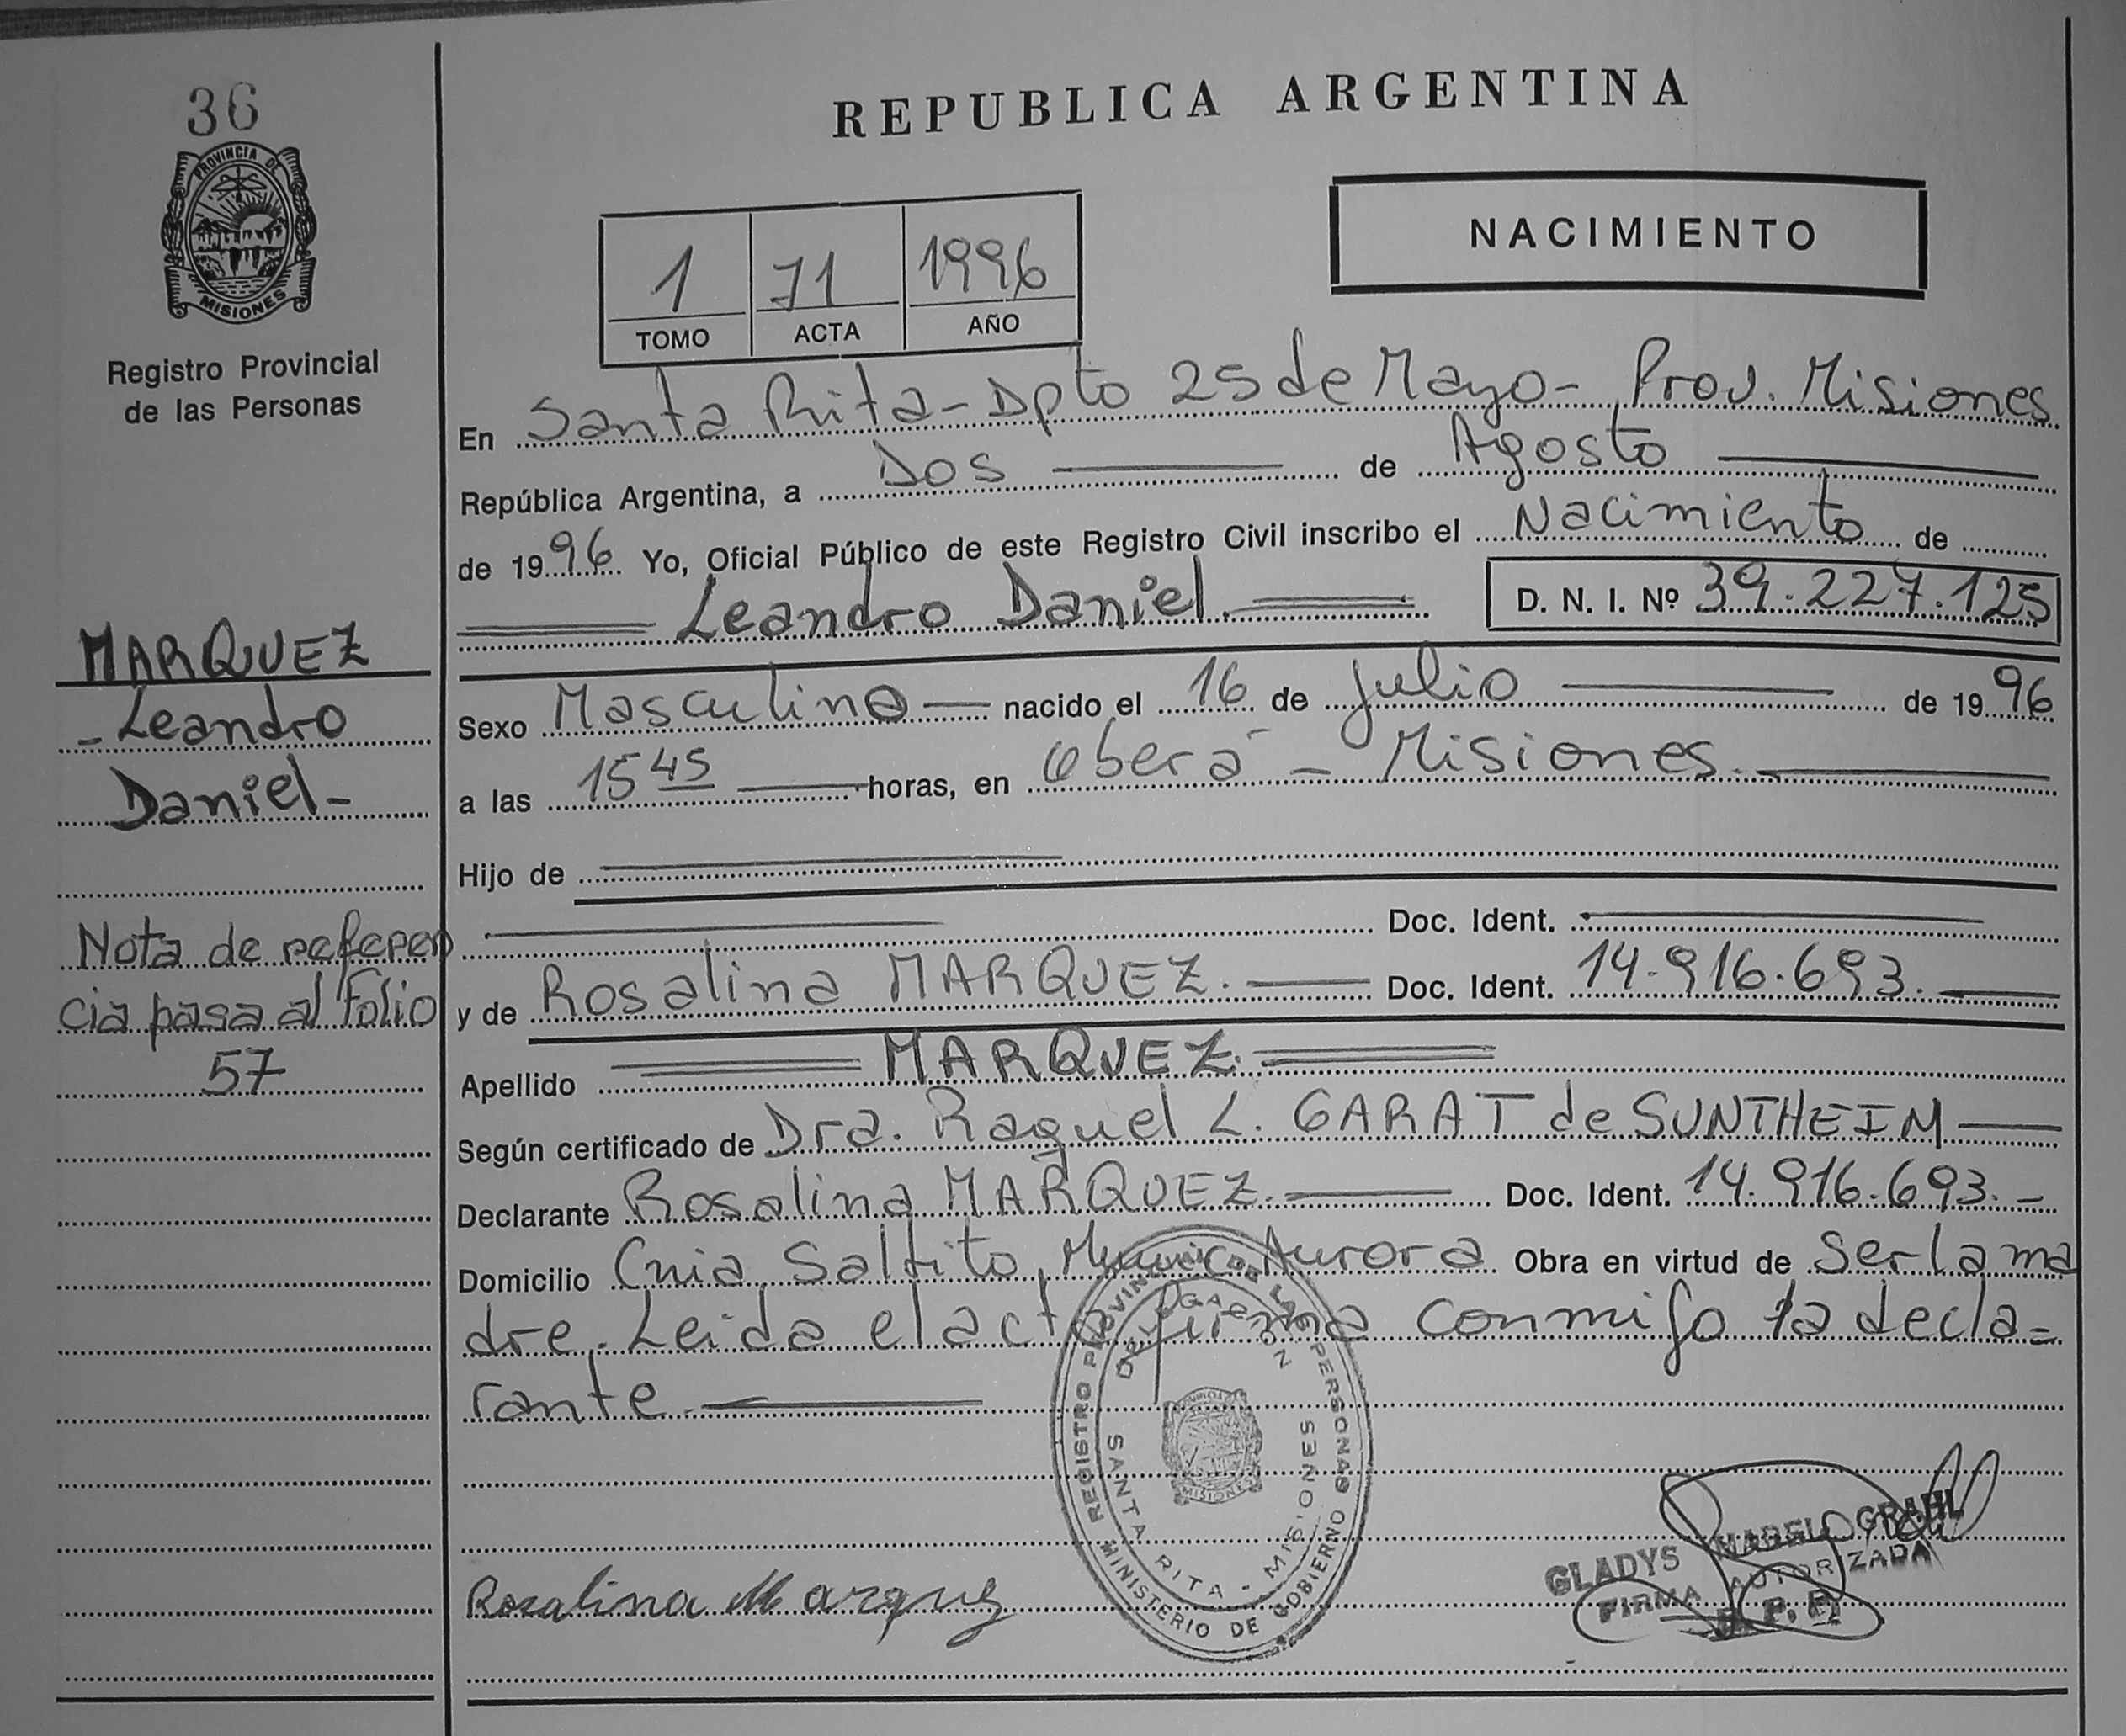 36
PROVINCIA DE
MISIONES
Registro Provincial
de las Personas
MARQUEZ
- Leandro
Daniel -
Nota de referen
cia pasa al Folio
57
REPUBLICA ARGENTINA
NACIMIENTO
1 71 1996
TOMO ACTA AÑO
En Santa Rita - Dpto 25 de Mayo - Prov. Misiones
República Argentina, a Dos de Agosto
de 1996 Yo, Oficial Público de este Registro Civil inscribo el Nacimiento de
Leandro Daniel. D. N. I. Nº 39.227.125
Sexo Masculino nacido el 16 de Julio de 1996
a las 15 45 horas, en Oberá - Misiones.
Hijo de
Doc. Ident.
y de Rosalina MARQUEZ. Doc. Ident. 14.916.693.
Apellido MARQUEZ.
Según certificado de Dra. Raquel L. GARAT de SUNTHEIM
Declarante Rosalina MARQUEZ. Doc. Ident. 14.916.693. -
Domicilio Cnia Saltito, Aurora Obra en virtud de Ser la ma
dre. Leida el acta firma conmigo la decla=
rante.
REGISTRO PROVINCIAL DE LAS PERSONAS
DELEGACION
SANTA RITA - MISIONES
MINISTERIO DE GOBIERNO
MISIONES
Rosalina Marquez
GLADYS GRAHL
FIRMA AUTORIZADA